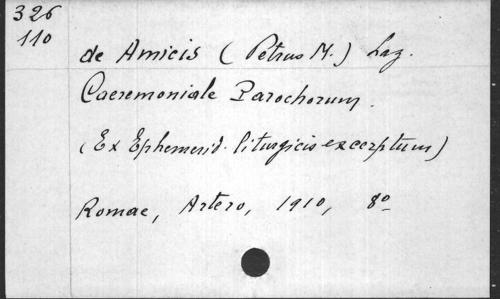 326
110
de Amicis (Petrus M.) Laz.
Caeremoniale Parochorum.
(Ex Ephemerid. liturgicis excerptum)
Romae, Artero, 1910, 8º